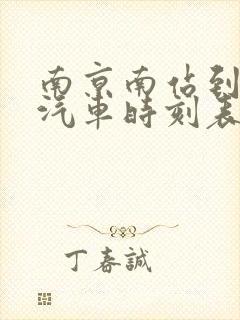 南京南佔到
汽車時刻表
丁春誠